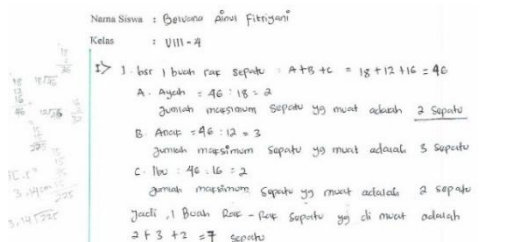 Nama Siswa : Belvana Ainul Fitriyani
Kelas : VIII-4
I> 1. bsr 1 buah rak sepatu : A+B+C = 18+12+16 = 46
A. Ayah = 46 : 18 = 2
Jumlah maksimum sepatu yg muat adalah 2 sepatu
B. Anak = 46 : 12 = 3
Jumlah maksimum sepatu yg muat adalah 3 sepatu
C. Ibu : 46 : 16 = 2
Jumlah maksimum sepatu yg muat adalah 2 sepatu
Jadi, 1 Buah Rak - Rak Sepatu yg di muat adalah
2 + 3 + 2 = 7 sepatu